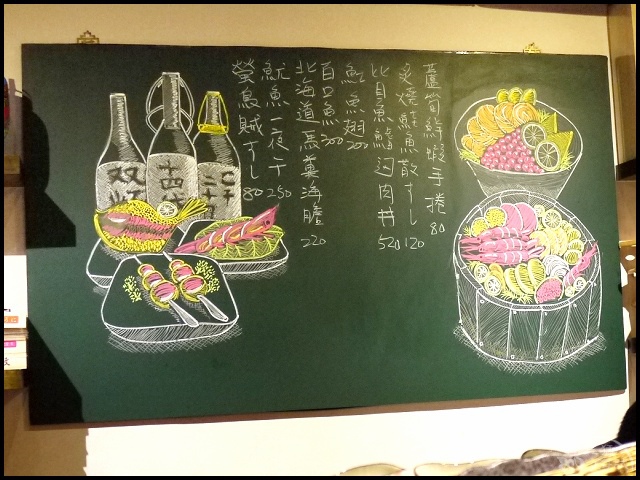 蘆筍鮮蝦手捲 80
炙燒鮭魚散すし 120
比目魚鰭边肉丼 520
魟魚翅 200
白口魚 300
北海道馬糞海膽 220
魷魚一夜干 250
螢烏賊すし 80